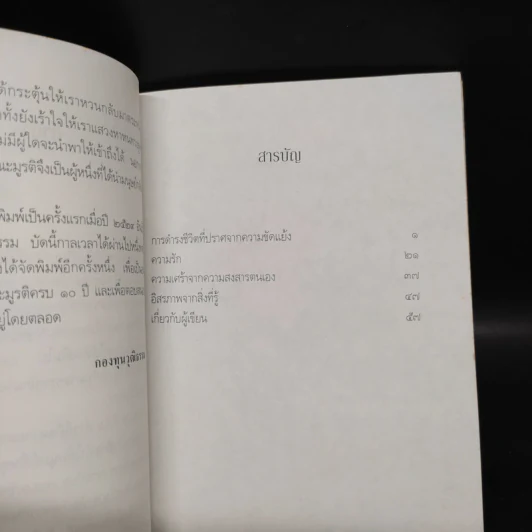 ด้กระตุ้นให้เราหวนกลับมา
ทั้งยังเร้าใจให้เราแสวงหา
ม่มีผู้ใดจะนำพาให้เข้าถึงได้
ณะมูรติจึงเป็นผู้หนึ่งที่ได้นำ
พิมพ์เป็นครั้งแรกเมื่อปี ๒๕๒๙
รรม บัดนี้กาลเวลาได้ผ่านไป
งได้จัดพิมพ์อีกครั้งหนึ่ง
ะมูรติครบ ๑๐ ปี
ยู่โดยตลอด
กองทุน
สารบัญ
การดำรงชีวิตที่ปราศจากความขัดแย้ง ๑
ความรัก ๒๑
ความเศร้าจากความสงสารตนเอง ๓๗
อิสรภาพจากสิ่งที่รู้ ๔๗
เกี่ยวกับผู้เขียน ๕๗